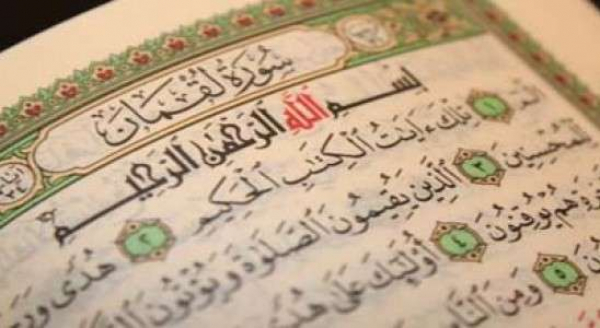 سُورَةُ لُقْمَانَ
بِسْمِ اللَّهِ الرَّحْمَٰنِ الرَّحِيمِ
الٓمٓ ١ تِلْكَ ءَايَٰتُ ٱلْكِتَٰبِ ٱلْحَكِيمِ ٢ هُدًى
ٱلَّذِينَ يُقِيمُونَ ٱلصَّلَوٰةَ وَيُؤْتُونَ
هُمْ يُوقِنُونَ ٤ أُو۟لَٰٓئِكَ عَلَىٰ هُدًى
٥ وَمِنَ ٱلنَّاسِ